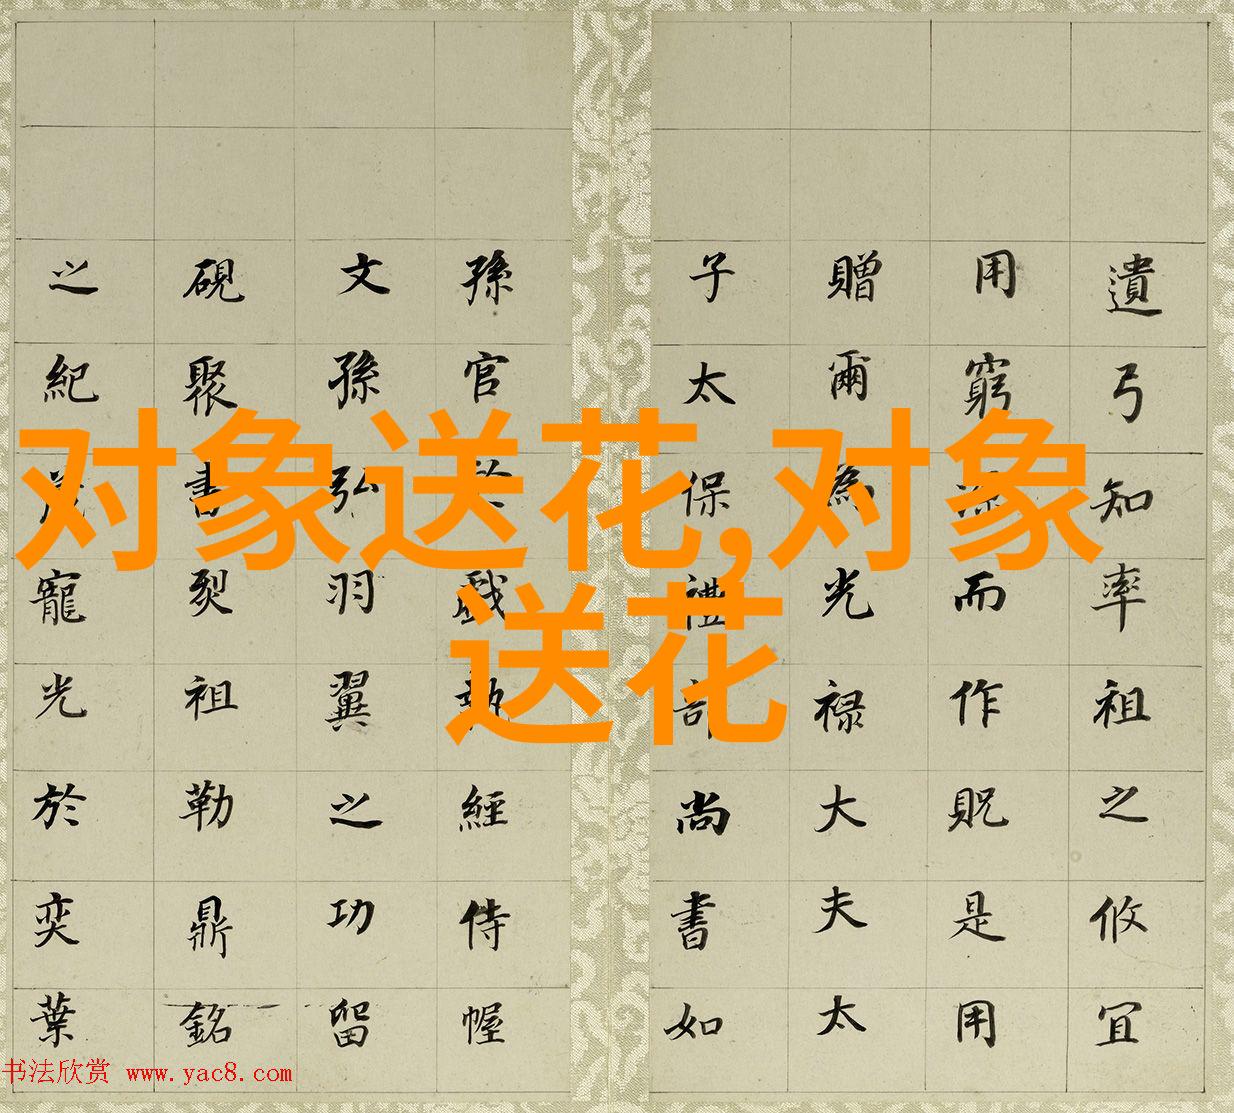 遺弓知率祖之攸宜
用窮而作貺是用
贈爾為光禄大夫太
子太保禮部尚書如
孫官戲執經侍幄
文孫弘羽翼之功留
硯聚書裂祖勒鼎銘
之紀寵光於奕葉
对象送花,对象
送花
书法欣赏 www.yac8.com